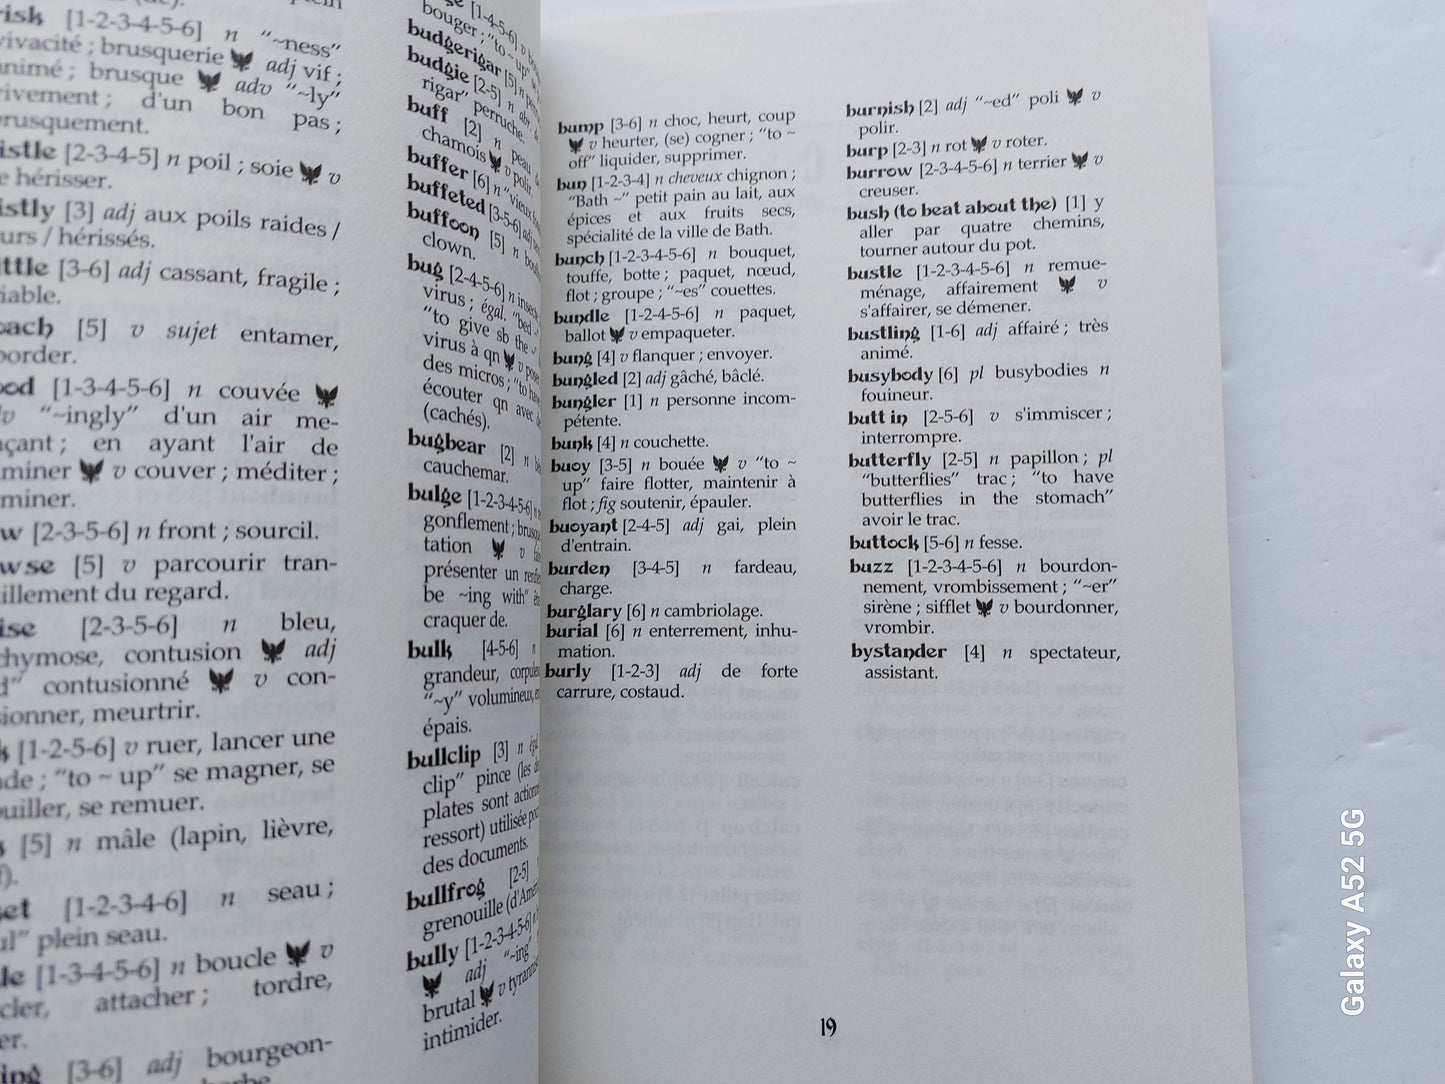 [1-2-3-4-5-6] n “~ness”
vivacité ; brusquerie adj vif ;
animé ; brusque adv “~ly”
vivement ; d'un bon pas ;
brusquement.
[2-3-4-5] n poil ; soie v
hérisser.
[3] adj aux poils raides /
/ hérissés.
[3-6] adj cassant, fragile ;
[5] v sujet entamer,
[1-3-4-5-6] n couvée
“~ingly” d'un air me-
naçant ; en ayant l'air de
v couver ; méditer ;
[2-3-5-6] n front ; sourcil.
[5] v parcourir tran-
quillement du regard.
[2-3-5-6] n bleu,
ecchymose, contusion adj
contusionné v con-
tusionner, meurtrir.
[1-2-5-6] v ruer, lancer une
“to ~ up” se magner, se
se remuer.
[5] n mâle (lapin, lièvre,
[1-2-3-4-6] n seau ;
plein seau.
[1-3-4-5-6] n boucle v
attacher ; tordre,
[3-6] adj bourgeon-
[1-4-5-6] v
bouger ; “to ~ up”
budgerigar [5] n
budgie [2-5] n abr. de
rigar” perruche.
buff [2] n peau
chamois v polir.
buffer [6] n “vieux
buffeted [3-5-6] adj
buffoon [5] n
clown.
bug [2-4-5-6] n insecte
virus ; égal. “bed
“to give sb the
virus à qn v
des micros ; “to
écouter qn avec
(cachés).
bugbear [2] n
cauchemar.
bulge [1-2-3-4-5-6]
gonflement ;
tation v
présenter un
be ~ing with”
craquer de.
bulk [4-5-6] n
grandeur,
“~y” volumineux,
épais.
bullclip [3] n égal.
clip” pince (les
plates sont
ressort) utilisée
des documents.
bullfrog [2-5]
grenouille
bully [1-2-3-4-5-6]
adj “~ing”
brutal v
intimider.
bump [3-6] n choc, heurt, coup
v heurter, (se) cogner ; “to ~
off” liquider, supprimer.
bun [1-2-3-4] n cheveux chignon ;
“Bath ~” petit pain au lait, aux
épices et aux fruits secs,
spécialité de la ville de Bath.
bunch [1-2-3-4-5-6] n bouquet,
touffe, botte ; paquet, nœud,
flot ; groupe ; “~es” couettes.
bundle [1-2-4-5-6] n paquet,
ballot v empaqueter.
bung [4] v flanquer ; envoyer.
bungled [2] adj gâché, bâclé.
bungler [1] n personne incom-
pétente.
bunk [4] n couchette.
buoy [3-5] n bouée v “to ~
up” faire flotter, maintenir à
flot ; fig soutenir, épauler.
buoyant [2-4-5] adj gai, plein
d'entrain.
burden [3-4-5] n fardeau,
charge.
burglary [6] n cambriolage.
burial [6] n enterrement, inhu-
mation.
burly [1-2-3] adj de forte
carrure, costaud.
burnish [2] adj “~ed” poli v
polir.
burp [2-3] n rot v roter.
burrow [2-3-4-5-6] n terrier v
creuser.
bush (to beat about the) [1] y
aller par quatre chemins,
tourner autour du pot.
bustle [1-2-3-4-5-6] n remue-
ménage, affairement v
s'affairer, se démener.
bustling [1-6] adj affairé ; très
animé.
busybody [6] pl busybodies n
fouineur.
butt in [2-5-6] v s'immiscer ;
interrompre.
butterfly [2-5] n papillon ; pl
“butterflies” trac ; “to have
butterflies in the stomach”
avoir le trac.
buttock [5-6] n fesse.
buzz [1-2-3-4-5-6] n bourdon-
nement, vrombissement ; “~er”
sirène ; sifflet v bourdonner,
vrombir.
bystander [4] n spectateur,
assistant.
19
Galaxy A52 5G